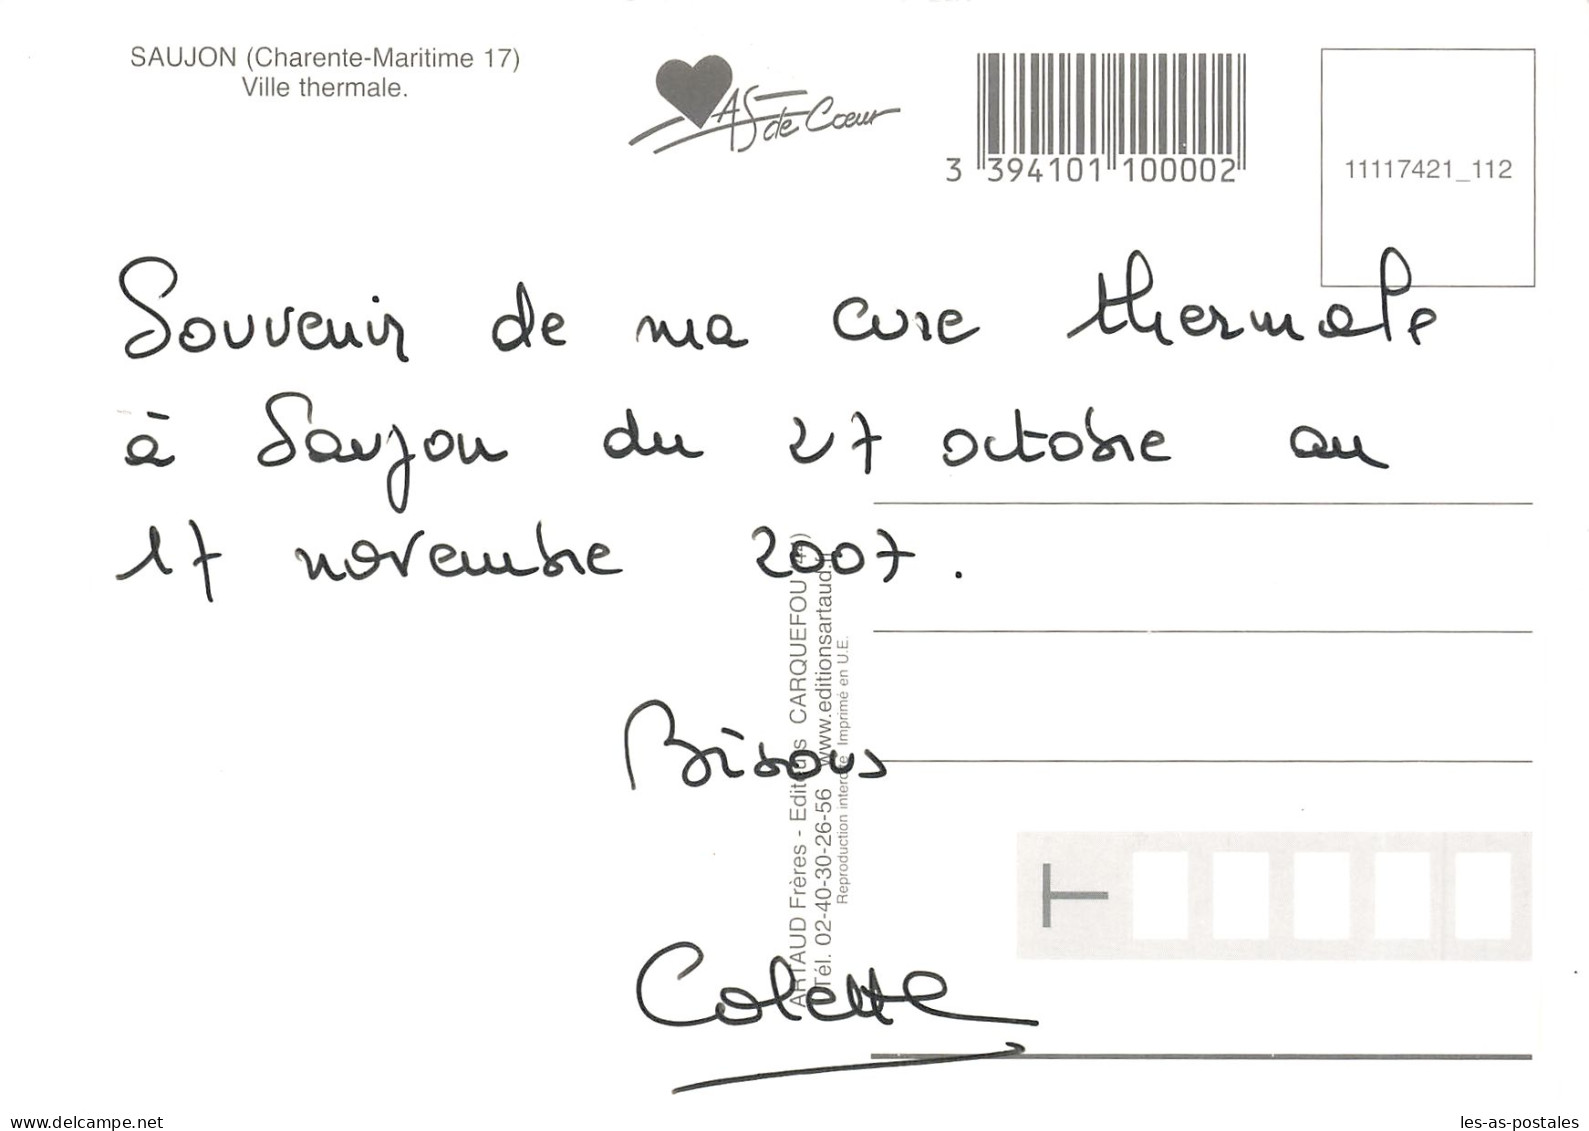 SAUJON (Charente-Maritime 17)
Ville thermale.
AS de Cœur
3 394101 100002
11117421_112
Souvenir de ma cure thermale
à Saujon du 27 octobre au
17 novembre 2007.
Bisous
Colette
ARTAUD Frères - Editeurs CARQUEFOU
Tél. 02-40-30-26-56 www.editionsartaud.
Reproduction interdite Imprimé en U.E.
T
delcampe.net
les-as-postales